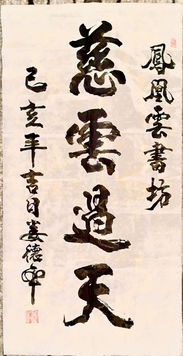 鳳凰雲書坊
慈雲遍天
己亥年吉日婁德